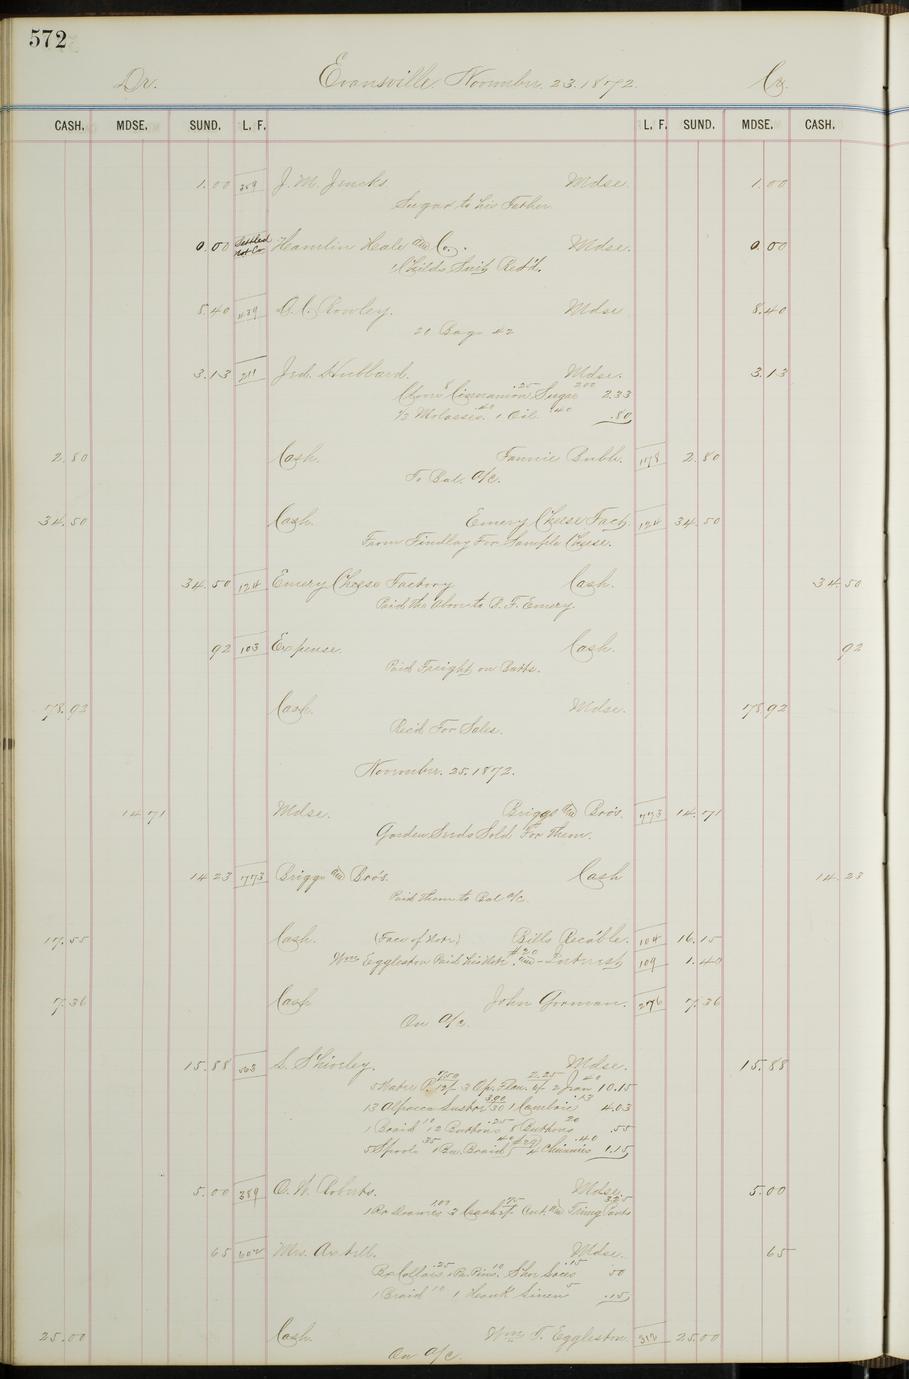 572
Dr. Evansville, November. 23. 1872. Cr.
CASH. MDSE. SUND. L. F. L. F. SUND. MDSE. CASH.
1.00 259 J. M. Jincks Mdse. 1.00
Sugar to his Father
0.00 Settled Not Co Hamlin Heale and Co. Mdse. 0.00
1 Childs Suit Red'd.
8.40 439 Rowley. Mdse 8.40
20 Bags 42
3.13 211 Jud. Hubbard. Mdse. 3.13
Cinnamon .25 Sugar 2.00 2.33
1/2 Molasses .40 1 Oil .40 .80
2.80 Cash. Fannie Bubb. 118 2.80
To Bal. a/c.
34.50 Cash. Emery Cheese Fact. 124 34.50
From Findlay For Sample Cheese.
34.50 124 Emery Cheese Factory Cash. 34.50
Paid the Above to D. F. Emery.
92 103 Expense. Cash. 92
Paid Freight on Batts.
78.93 Cash. Mdse. 78.92
Rec'd For Sales.
November. 25. 1872.
14.71 Mdse. Briggs and Bro's. 773 14.71
Garden Seeds Sold For Them.
14.23 773 Briggs and Bro's. Cash 14.23
Paid them to Bal a/c.
17.55 Cash. (Face of Note) Bills Rec'able. 104 16.15
Wm Eggleston Paid his Note $20 and Interest 109 1.40
7.36 Cash John Gorman. 276 7.36
On a/c.
15.88 563 S. Shirley. Mdse. 15.88
7.50 2.25 .40
5 Water P. 12/- 3 Op. Flan. 6/- 2 Jean 10.15
13 Alpacca Lustre 30 3.90 1 Cambric .13 4.03
1 Braid 10 2 Buttons .25 8 Buttons 20 .55
5 Spools 35 1 Bu. Braid 40 4 Chimnies .40 1.15
5.00 389 O. W. Roberts. Mdse. 5.00
1 Pr Drawers 1.00 3 Cash 2/- .75 Cut. and Trimg Pants 3.25
65 602 Mrs. Mdse. 65
Bx Collars .25 1 Pa. Pins. 10 Shoe Laces .15 50
1 Braid 10 1 Hank Linen 5 .15
25.00 Cash. Wm T. Eggleston. 312 25.00
On a/c.